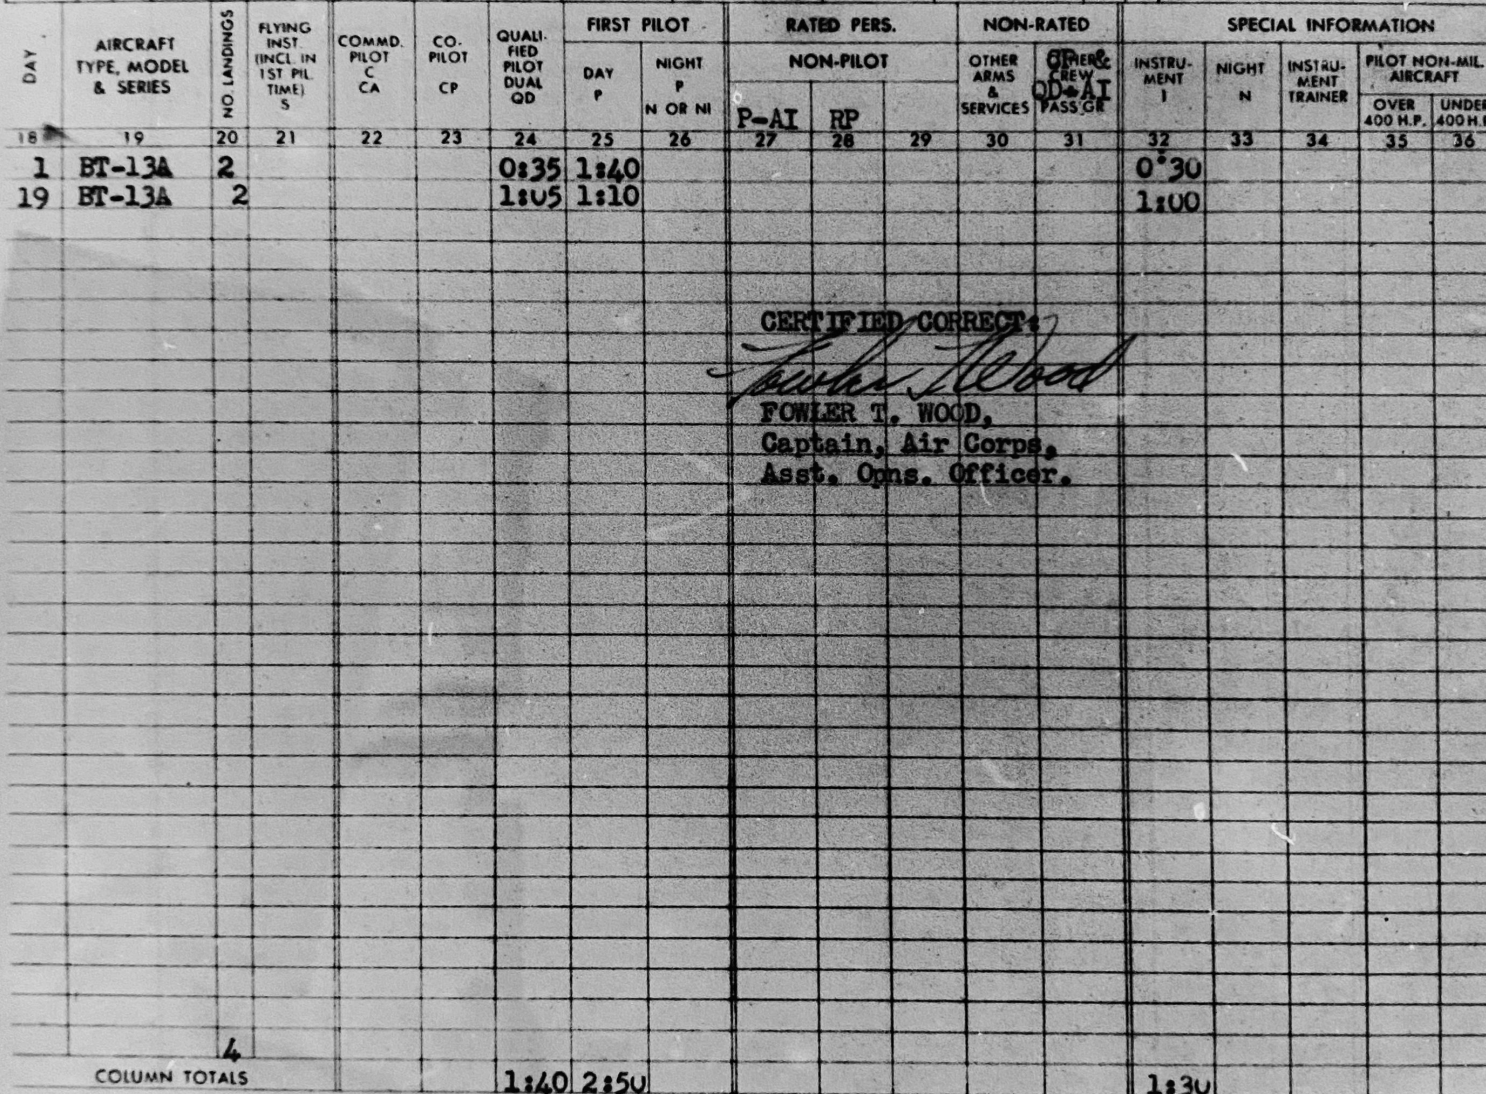 DAY
AIRCRAFT
TYPE, MODEL
& SERIES
NO. LANDINGS
FLYING
INST.
(INCL. IN
1ST PIL.
TIME)
S
COMMD.
PILOT
C
CA
CO-
PILOT
CP
QUALI-
FIED
PILOT
DUAL
QD
FIRST PILOT
DAY
P
NIGHT
P
N OR NI
RATED PERS.
NON-PILOT
P-AI RP
NON-RATED
OTHER
ARMS
&
SERVICES
CREW
QD-AI
PASS'GR
SPECIAL INFORMATION
INSTRU-
MENT
I
NIGHT
N
INSTRU-
MENT
TRAINER
PILOT NON-MIL.
AIRCRAFT
OVER
400 H.P.
UNDER
400 H.P.
18 19 20 21 22 23 24 25 26 27 28 29 30 31 32 33 34 35 36
1 BT-13A 2 0:35 1:40 0:30
19 BT-13A 2 1:05 1:10 1:00
CERTIFIED CORRECT:
Fowler T Wood
FOWLER T. WOOD,
Captain, Air Corps,
Asst. Opns. Officer.
4
COLUMN TOTALS 1:40 2:50 1:30